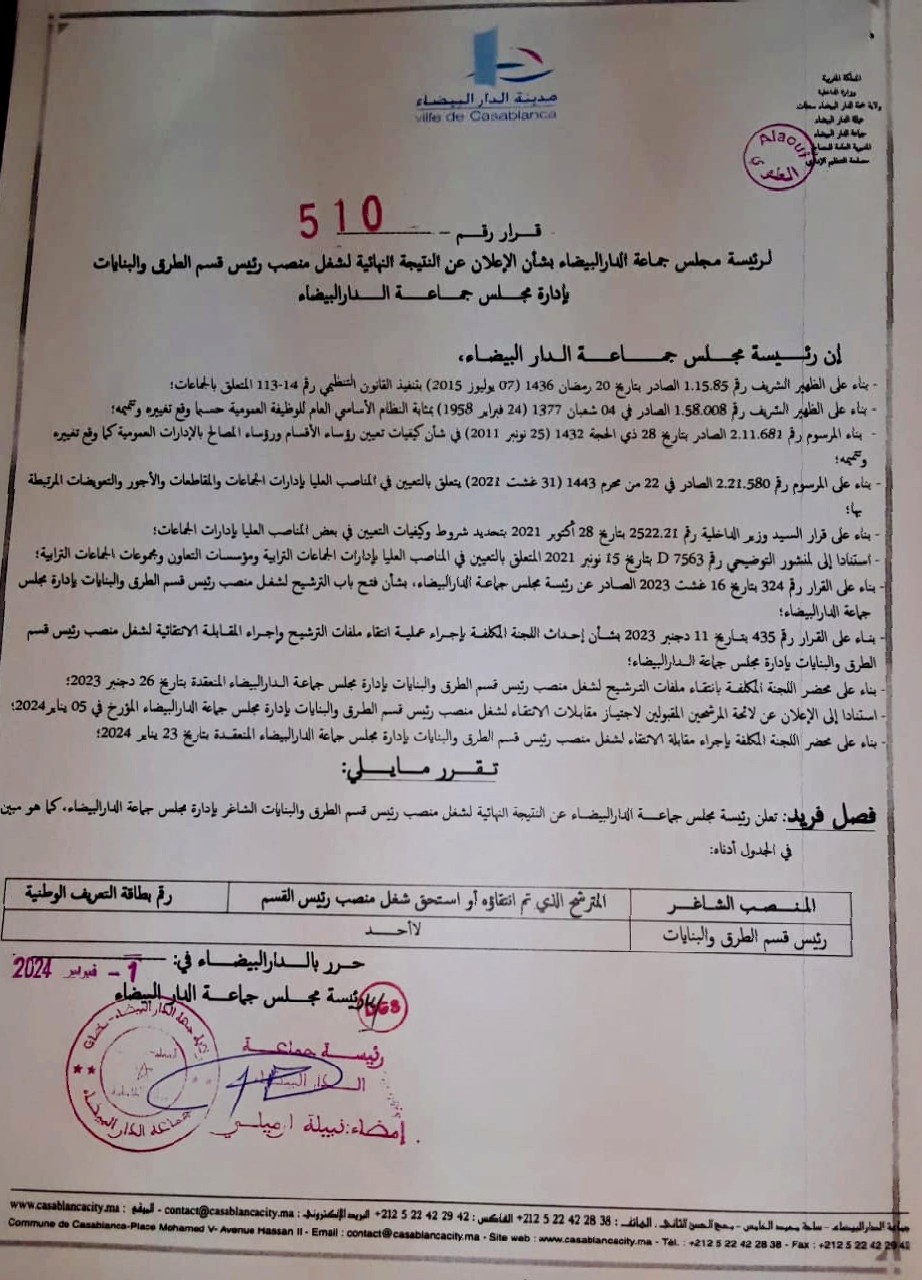 مدينة الدار البيضاء
ville de Casablanca
المملكة المغربية
وزارة الداخلية
ولاية جهة الدار البيضاء سطات
عمالة الدار البيضاء
جماعة الدار البيضاء
المديرية العامة للمصالح
مصلحة التنظيم
Alaoui
العلوي
قرار رقم 510
لرئيسة مجلس جماعة الدارالبيضاء بشأن الإعلان عن النتيجة النهائية لشغل منصب رئيس قسم الطرق والبنايات
بإدارة مجلس جماعة الدارالبيضاء
إن رئيسة مجلس جماعة الدار البيضاء،
- بناء على الظهير الشريف رقم 1.15.85 الصادر بتاريخ 20 رمضان 1436 (07 يوليوز 2015) بتنفيذ القانون التنظيمي رقم 14-113 المتعلق بالجماعات؛
- بناء على الظهير الشريف رقم 1.58.008 الصادر في 04 شعبان 1377 (24 فبراير 1958) بمثابة النظام الأساسي العام للوظيفة العمومية حسبما وقع تغييره وتتميمه؛
- بناء المرسوم رقم 2.11.681 الصادر بتاريخ 28 ذي الحجة 1432 (25 نونبر 2011) في شأن كيفيات تعيين رؤساء الأقسام ورؤساء المصالح بالإدارات العمومية كما وقع تغييره
وتتميمه؛
- بناء على المرسوم رقم 2.21.580 الصادر في 22 من محرم 1443 (31 غشت 2021) يتعلق بالتعيين في المناصب العليا بإدارات الجماعات والمقاطعات والأجور والتعويضات المرتبطة
بها؛
- بناء على قرار السيد وزير الداخلية رقم 2522.21 بتاريخ 28 أكتوبر 2021 بتحديد شروط وكيفيات التعيين في بعض المناصب العليا بإدارات الجماعات؛
- استنادا إلى المنشور التوضيحي رقم D 7563 بتاريخ 15 نونبر 2021 المتعلق بالتعيين في المناصب العليا بإدارات الجماعات الترابية ومؤسسات التعاون ومجموعات الجماعات الترابية؛
- بناء على القرار رقم 324 بتاريخ 16 غشت 2023 الصادر عن رئيسة مجلس جماعة الدارالبيضاء، بشأن فتح باب الترشيح لشغل منصب رئيس قسم الطرق والبنايات بإدارة مجلس
جماعة الدارالبيضاء؛
- بناء على القرار رقم 435 بتاريخ 11 دجنبر 2023 بشأن إحداث اللجنة المكلفة بإجراء عملية انتقاء ملفات الترشيح وإجراء المقابلة الانتقائية لشغل منصب رئيس قسم
الطرق والبنايات بإدارة مجلس جماعة الدارالبيضاء؛
- بناء على محضر اللجنة المكلفة بانتقاء ملفات الترشيح لشغل منصب رئيس قسم الطرق والبنايات بإدارة مجلس جماعة الدارالبيضاء المنعقدة بتاريخ 26 دجنبر 2023؛
- استنادا إلى الإعلان عن لائحة المرشحين المقبولين لاجتياز مقابلات الانتقاء لشغل منصب رئيس قسم الطرق والبنايات بإدارة مجلس جماعة الدارالبيضاء المؤرخ في 05 يناير2024؛
- بناء على محضر اللجنة المكلفة بإجراء مقابلة الانتقاء لشغل منصب رئيس قسم الطرق والبنايات بإدارة مجلس جماعة الدارالبيضاء المنعقدة بتاريخ 23 يناير 2024؛
تقرر مايلي:
فصل فريد: تعلن رئيسة مجلس جماعة الدارالبيضاء عن النتيجة النهائية لشغل منصب رئيس قسم الطرق والبنايات الشاغر بإدارة مجلس جماعة الدارالبيضاء، كما هو مبين
في الجدول أدناه:
المنصب الشاغر المترشح الذي تم انتقاؤه أو استحق شغل منصب رئيس القسم رقم بطاقة التعريف الوطنية
رئيس قسم الطرق والبنايات لاأحد
حرر بالدارالبيضاء في: 1 - فبراير 2024
رئيسة مجلس جماعة الدار البيضاء
رئيسة جماعة
الدار البيضاء
إمضاء: نبيلة ارميلي
جماعة الدار البيضاء
جماعة الدارالبيضاء - ساحة محمد الخامس - شارع الحسن الثاني . الهاتف : 38 28 42 22 5 212+ الفاكس : 42 29 42 22 5 212+ البريد الإلكتروني : contact@casablancacity.ma - الموقع : www.casablancacity.ma
Commune de Casablanca-Place Mohamed V- Avenue Hassan II - Email : contact@casablancacity.ma - Site web : www.casablancacity.ma - Tél. : +212 5 22 42 28 38 - Fax : +212 5 22 42 29 42